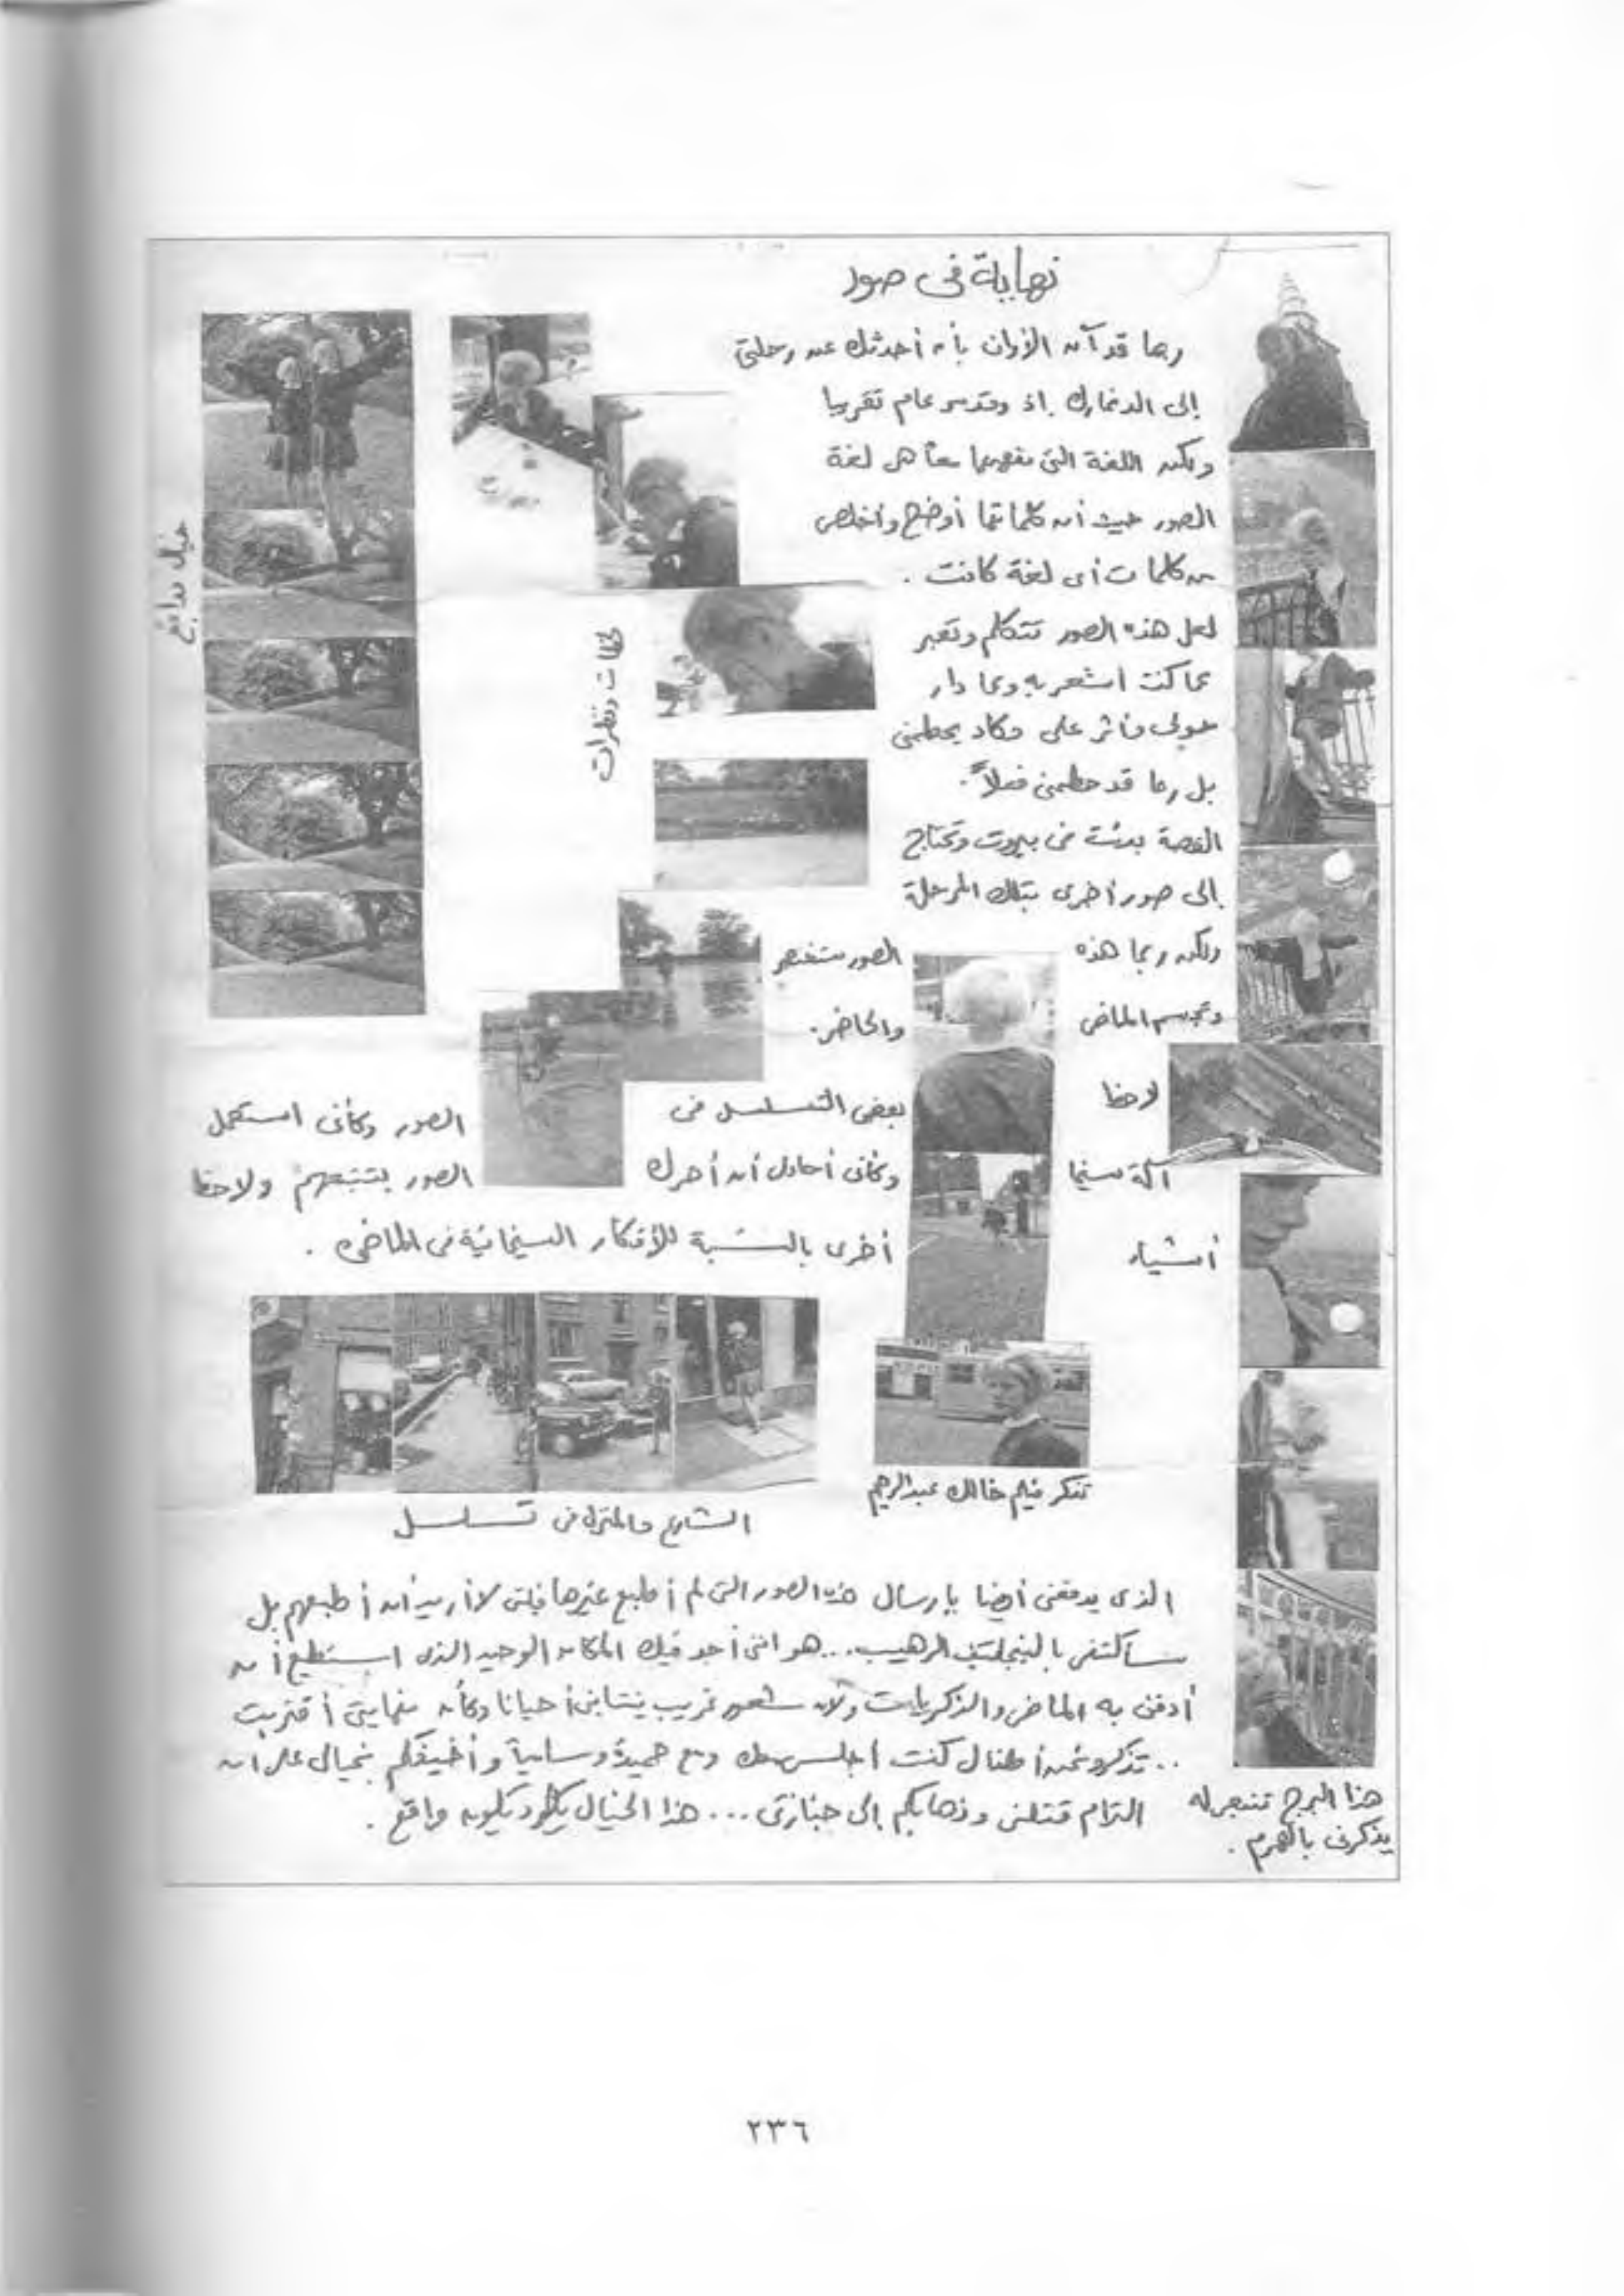 نهاية فى صور
ربما قد آن الأوان بأن أحدثك عن رحلتى
إلى الدنمارك إذ وقد مر عام تقريبا
ولكن اللغة التى نفهمها معاً هى لغة
الصور حيث أن كلماتها أوضح وأخلص
من كلمات أى لغة كانت .
لعل هذه الصور تتكلم وتعبر
عما كنت أشعر به وعما دار
حولى فأثر على وكاد يحطمنى
بل ربما قد حطمنى فعلاً .
القصة بدئت فى بيروت وتحتاج
إلى صور أخرى بتلك المرحلة
ولكن ربما هذه الصور ستختصر
وتجسم الماضى والحاضر .
لاحظ بعض التسلسل فى الصور وكأنى استعمل
آلة سينما وكأنى أحاول أن أحرك الصور بتتبعهم ولاحظ
أشياء أخرى بالنسبة للأفكار السينمائية فى الماضى .
خيال بدايع
لمحات ونظرات
تذكر فيلم خالك عبدالرحيم
الشارع والمنزل فى تسلسل
الذى يدفعنى أيضا بإرسال هذه الصور التى لم أطبع غيرها فإنى لا أريد أن أطبعهم بل
سأكتفى بالنيجاتيف الرهيب... هو اننى أجد فيك المكان الوحيد الذى استطيع أن
أدفن به الماضى والذكريات ولأن شعور غريب ينتابنى أحيانا وكأن نهايتى أقتربت
.. تذكر ونحن أطفال كنت أجلس معك ومع حميدة وسامية وأخيفكم بخيالى على أن
الترام قتلنى وذهابكم إلى جنازتى ... هذا الخيال يكاد يكون واقع .
هذا البرج تنتصر له
يذكرنى بالهرم .
٢٣٦